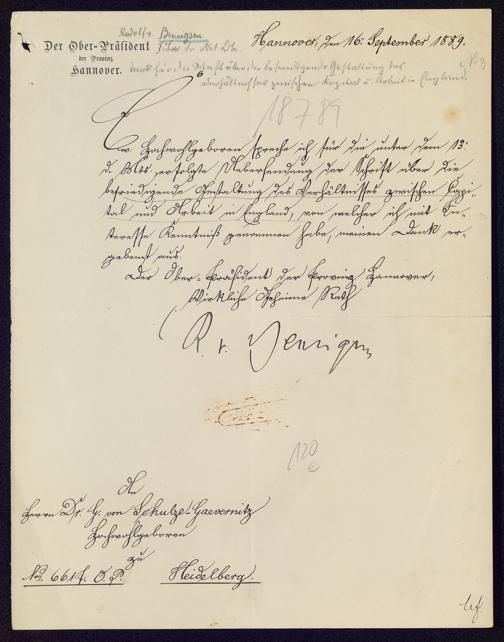 Rudolf v. Bennigsen
Der Ober-Präsident
der Provinz
Hannover.
Hannover, den 16. September 1889.
Dank für die Schrift über die befriedigende Gestaltung des
Verhältnisses zwischen Kapital u. Arbeit in England.
18789
Ew. Hochwohlgeboren spreche ich für die unter dem 13.
d. Mts. erfolgte Uebersendung der Schrift über die
befriedigende Gestaltung des Verhältnisses zwischen Kapi-
tal und Arbeit in England, von welcher ich mit In-
teresse Kenntniß genommen habe, meinen Dank er-
gebenst aus.
Der Ober-Präsident der Provinz Hannover,
Wirkliche Geheime Rath
R. v. Bennigsen
120
An
Herrn Dr. G. von Schulze-Gaevernitz
Hochwohlgeboren
zu
Heidelberg.
O. P.